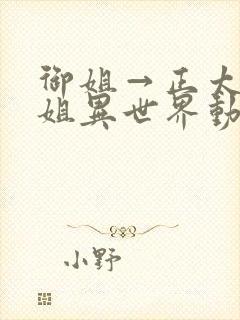 御姐→正太
姐異世界動
小野